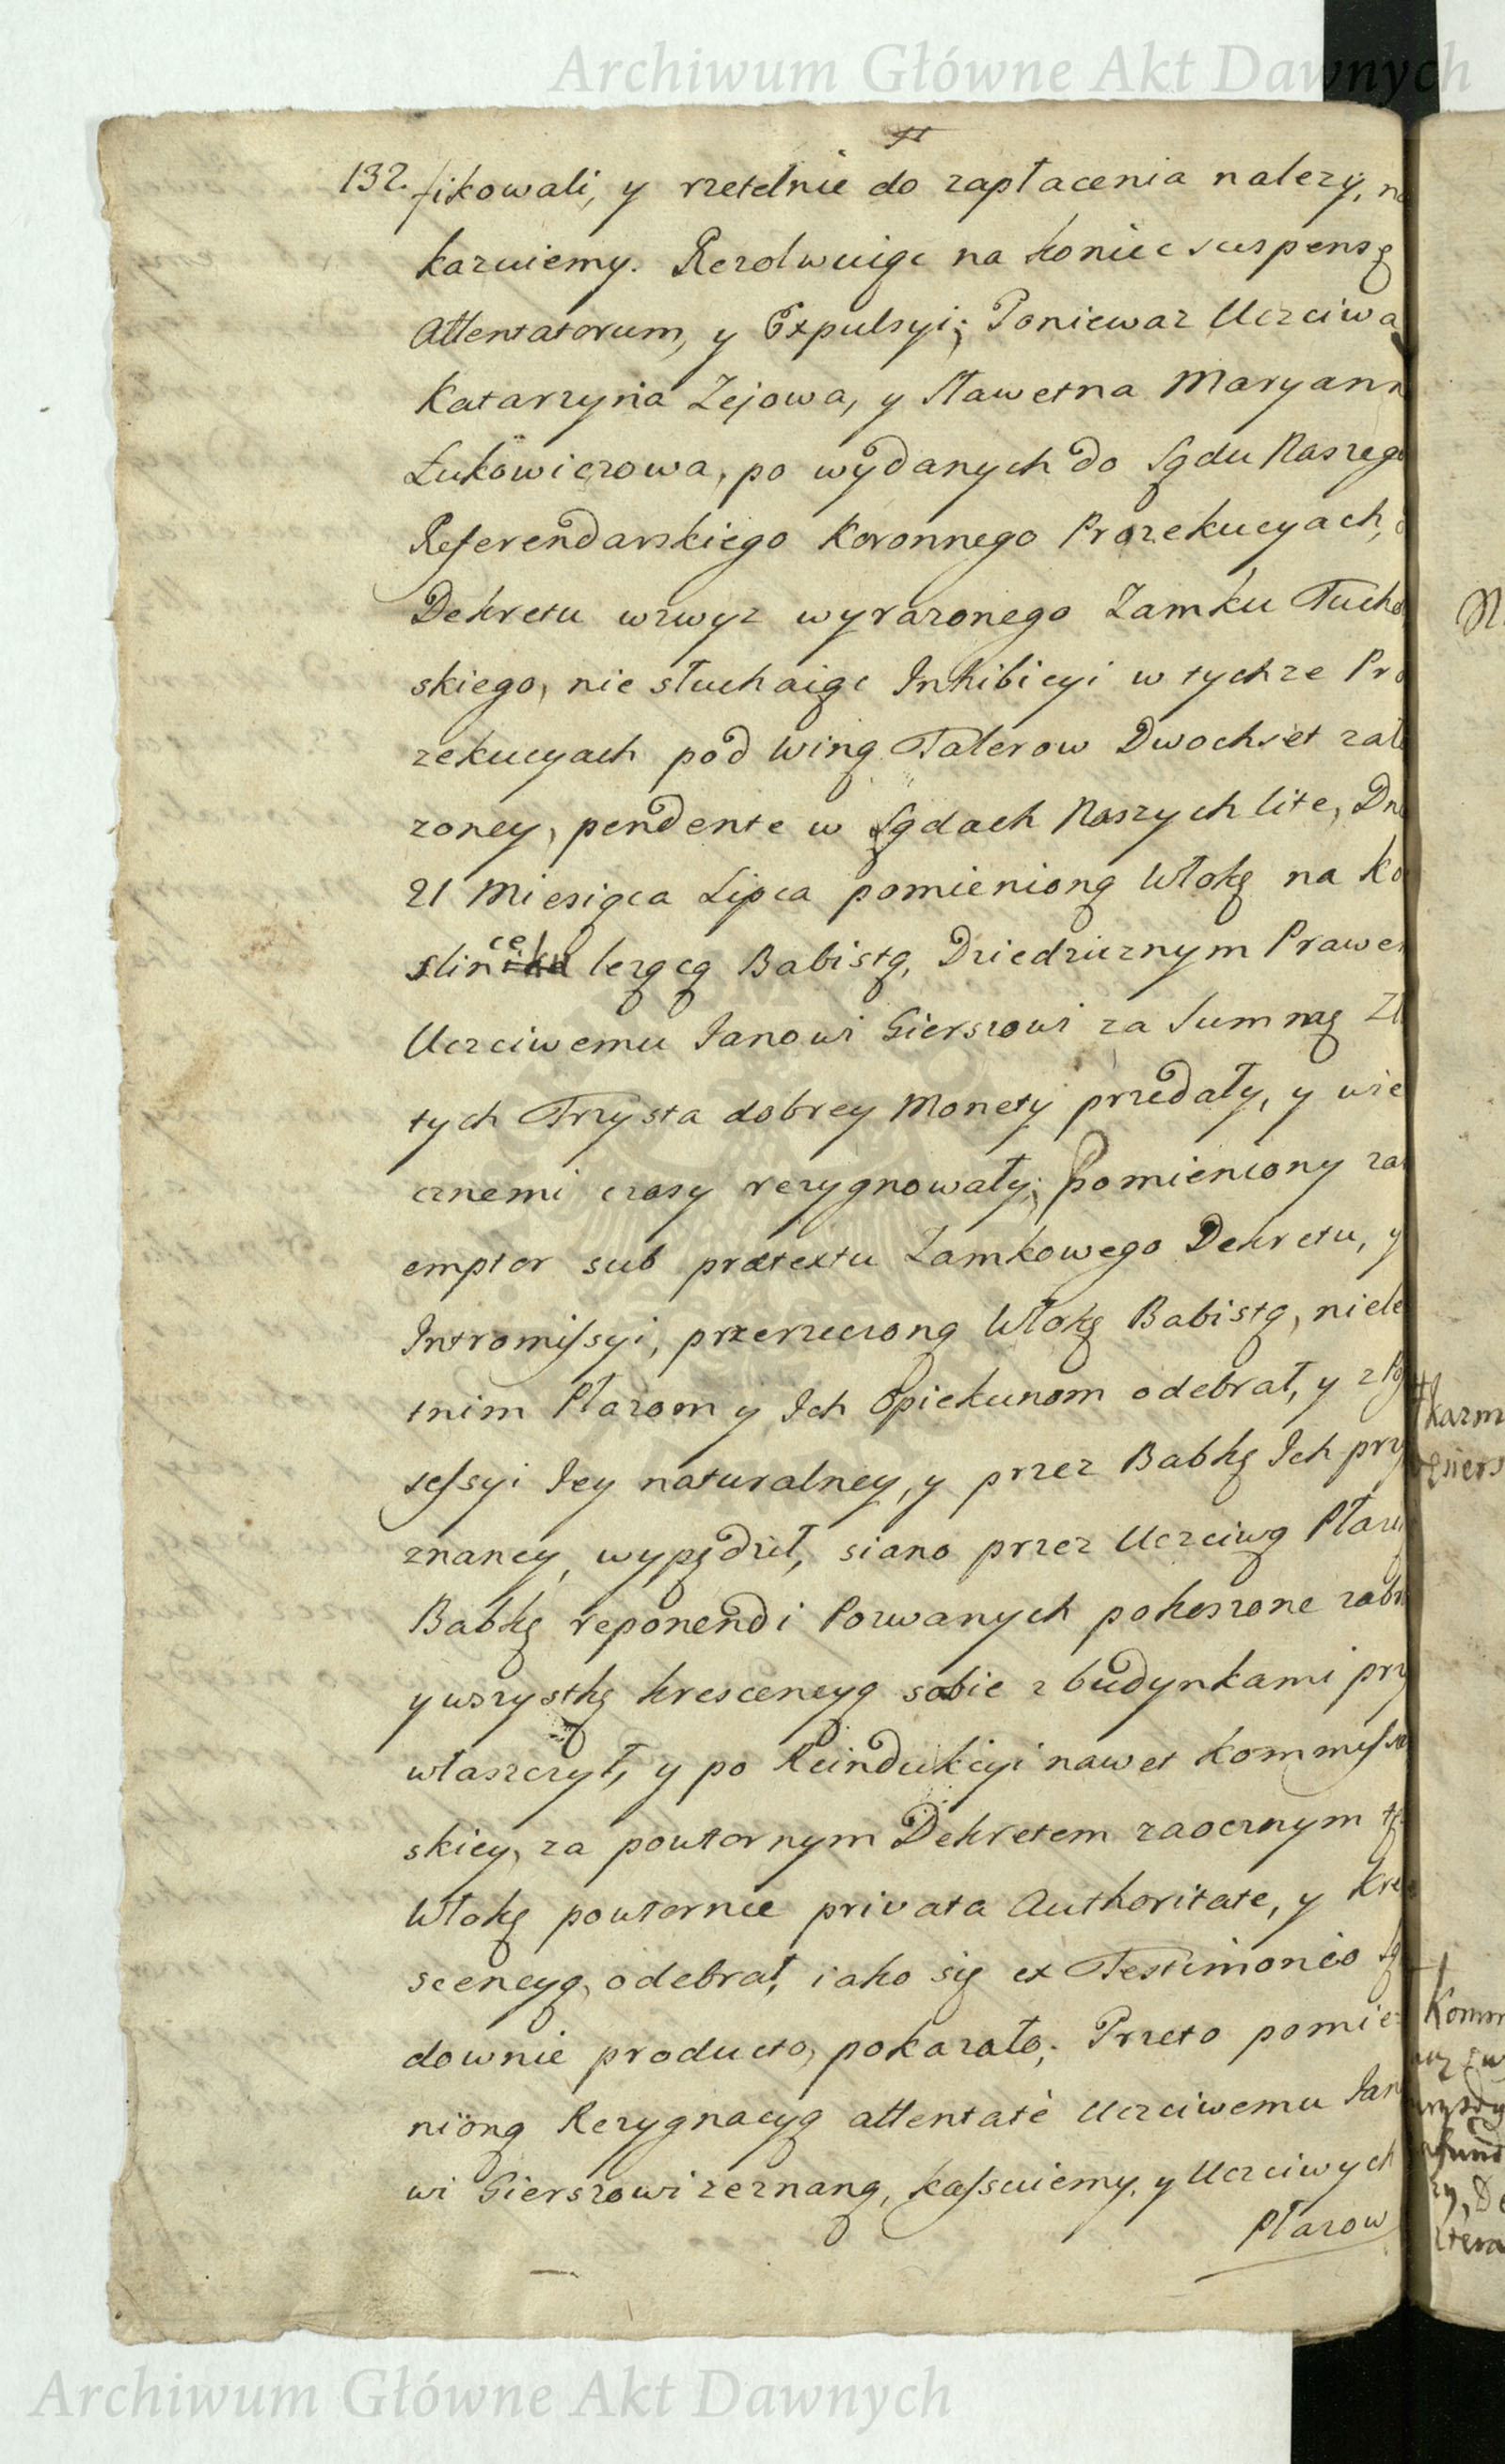 Archiwum Główne Akt Dawnych
132. fikowali, y rzetelnie do zapłacenia nalezy, na
kazuiemy. Rezolwuiąc na koniec suspensę
Attentatorum, y Expulsyi; Poniewaz Uczciwa
Katarzyna Zejowa, y Sławetna Maryann
Łukowiczowa, po wydanych do Sądu Naszego
Referendarskiego Koronnego Prozekucyach,
Dekretu wzwyz wyrazonego Zamku Tucho
skiego, nie słuchaiąc Inhibicyi w tychze Pro
zekucyach pod winą Talerow Dwochset zało
zoney, pendente w Sądach Naszych lite, Dn
21 Miesiąca Lipca pomienioną Włokę na Ko
slince lezącą Babistą, Dziedzicznym Prawem
Uczciwemu Janowi Gierszowi za Summę Zł
tych Trzysta dobrey Monety przedały, y wie
cznemi czasy rezygnowały; Pomieniony zas
emptor sub prætextu Zamkowego Dekretu, y
Intromissyi, przerzeczoną Włokę Babistą, niele
tnim Płazom y Ich Opiekunom odebrał, y z Po
sessyi Iey naturalney, y przez Babkę Ich przy
znaney, wypędził, siano przez Uczciwą Płazo
Babkę reponendi Pozwanych pokoszone zabr
y wszystkę krescencyą sobie z budynkami przy
właszczył, y po Reindukcyi nawet Kommissar
skiey, za powtornym Dekretem zaocznym tę
Włokę powtornie privata Authoritate, y Kre
scencyą odebrał, iako się ex Testimonio Są
downie producto, pokazało; Przeto pomie
nioną Rezygnacyą attentatè Uczciwemu Jano
wi Gierszowi zeznaną, kassuiemy, y Uczciwych
Płazow
Archiwum Główne Akt Dawnych